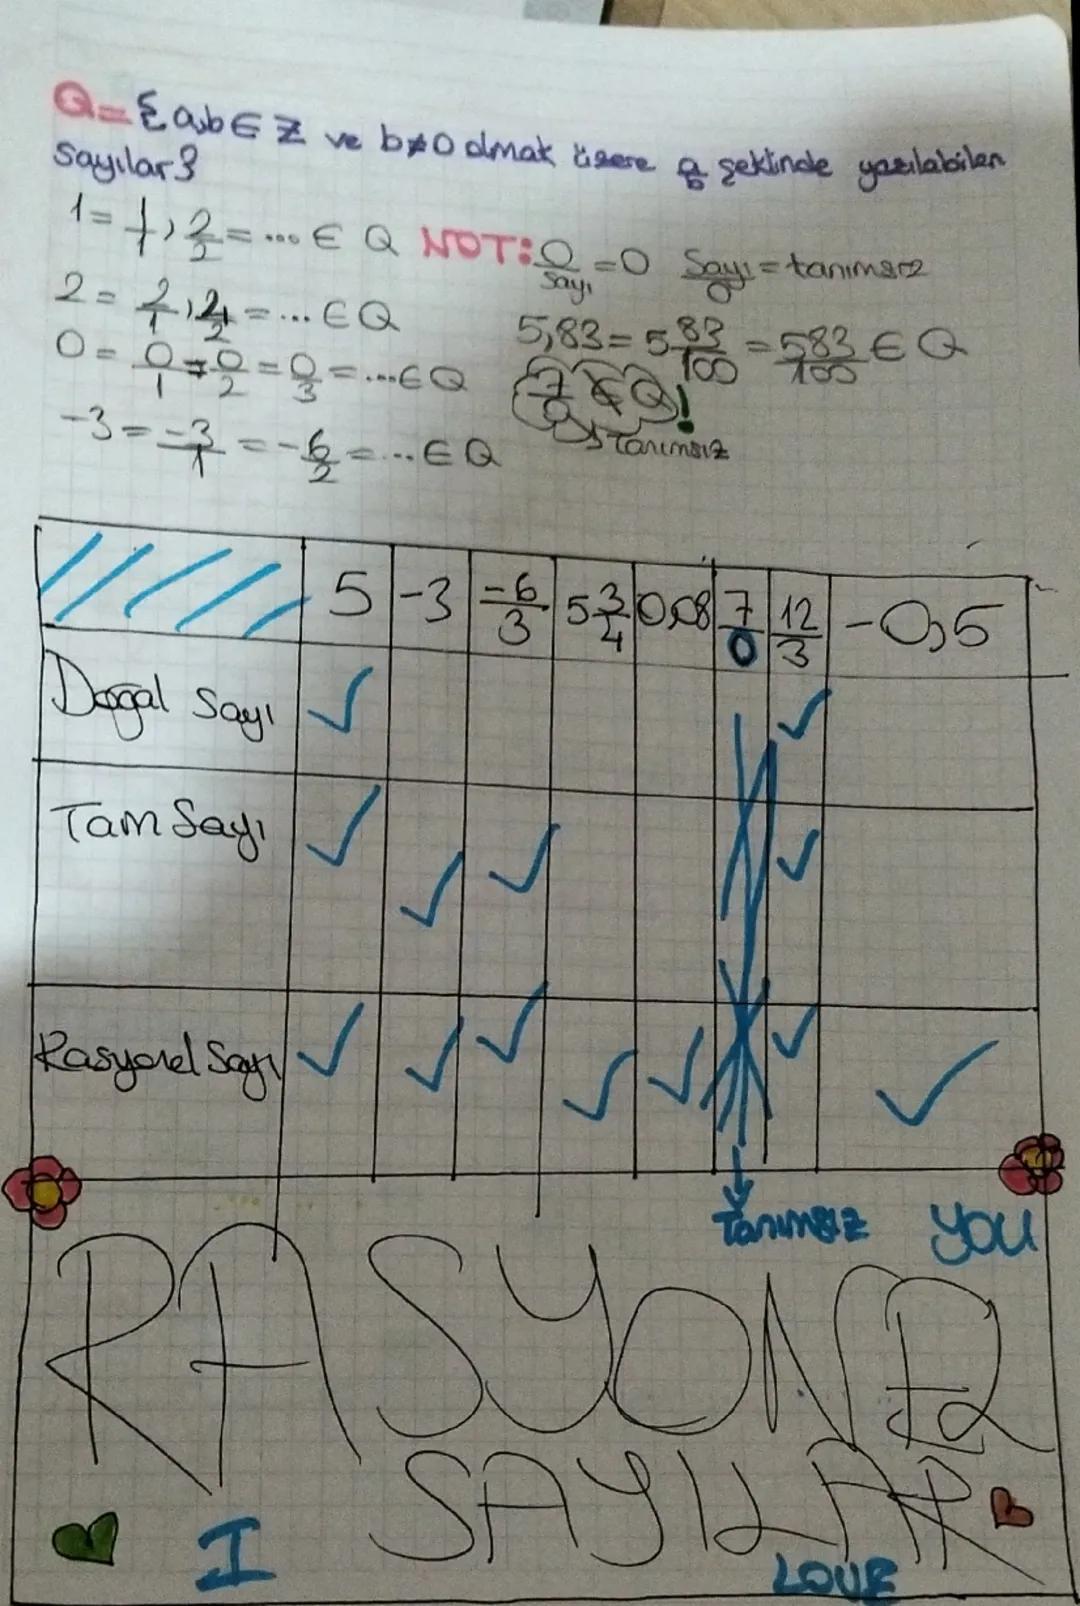 Q={a,b∈Z ve b≠0 olmak üzere a/b şeklinde yazılabilen
sayılar}
1 = 1/1, 2/2 = ... ∈ Q NOT: 0/sayı = 0 Sayı/0 = tanımsız
2 = 2/1, 4/2 = ... ∈ Q 5,83 = 5 83/100 = 583/100 ∈ Q
0 = 0/1 = 0/2 = 0/3 = ... ∈ Q 7/0 ∉ Q !
↳ Tanımsız
-3 = -3/1 = -6/2 = ... ∈ Q
5 -3 -6/3 5 3/4 0,08 7/0 12/3 -0,5
Doğal Sayı ✓ ✓
Tam Sayı ✓ ✓ ✓ ✓
Rasyonel Sayı ✓ ✓ ✓ ✓ ✓ ✓ ✓
Tanımsız YOU
RASYONEL
SAYILAR
I LOVE